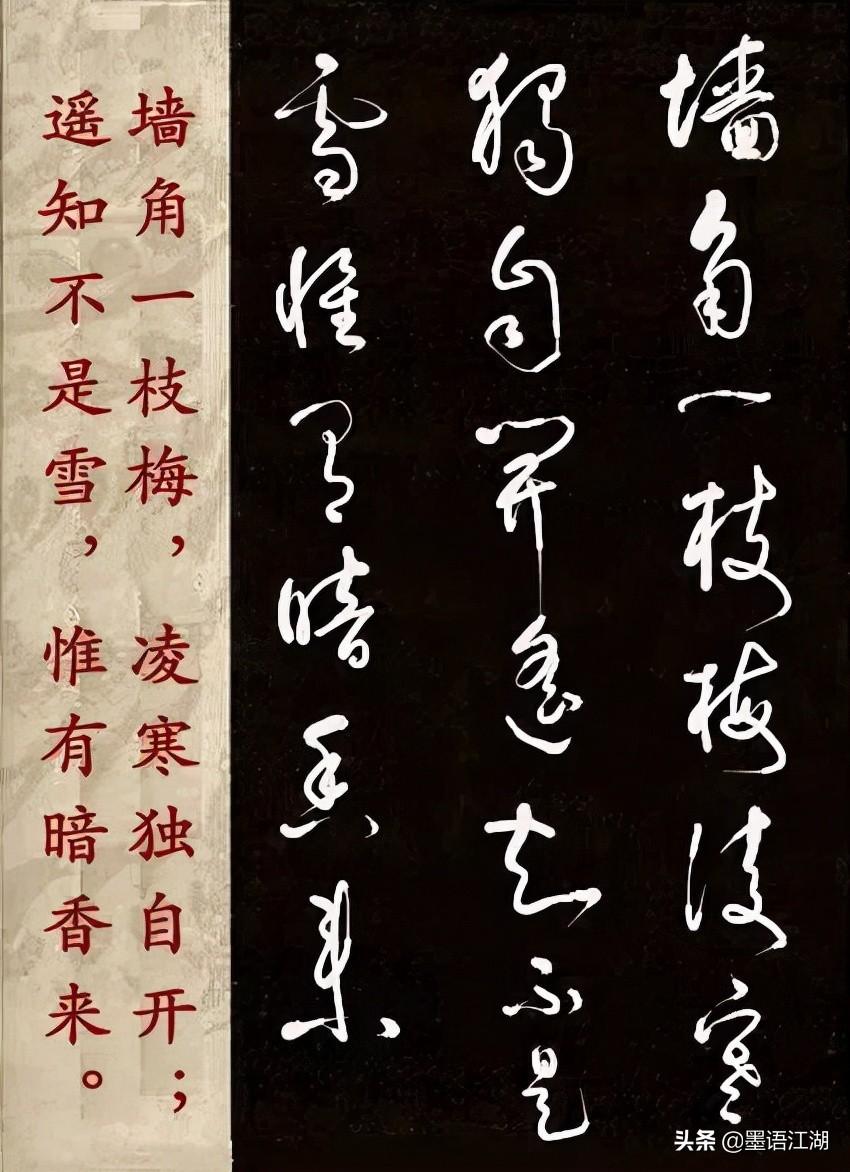 墙角一枝梅凌寒
独自开遥知不是
雪惟有暗香来
墙角一枝梅，凌寒独自开；
遥知不是雪，惟有暗香来。
头条 @墨语江湖